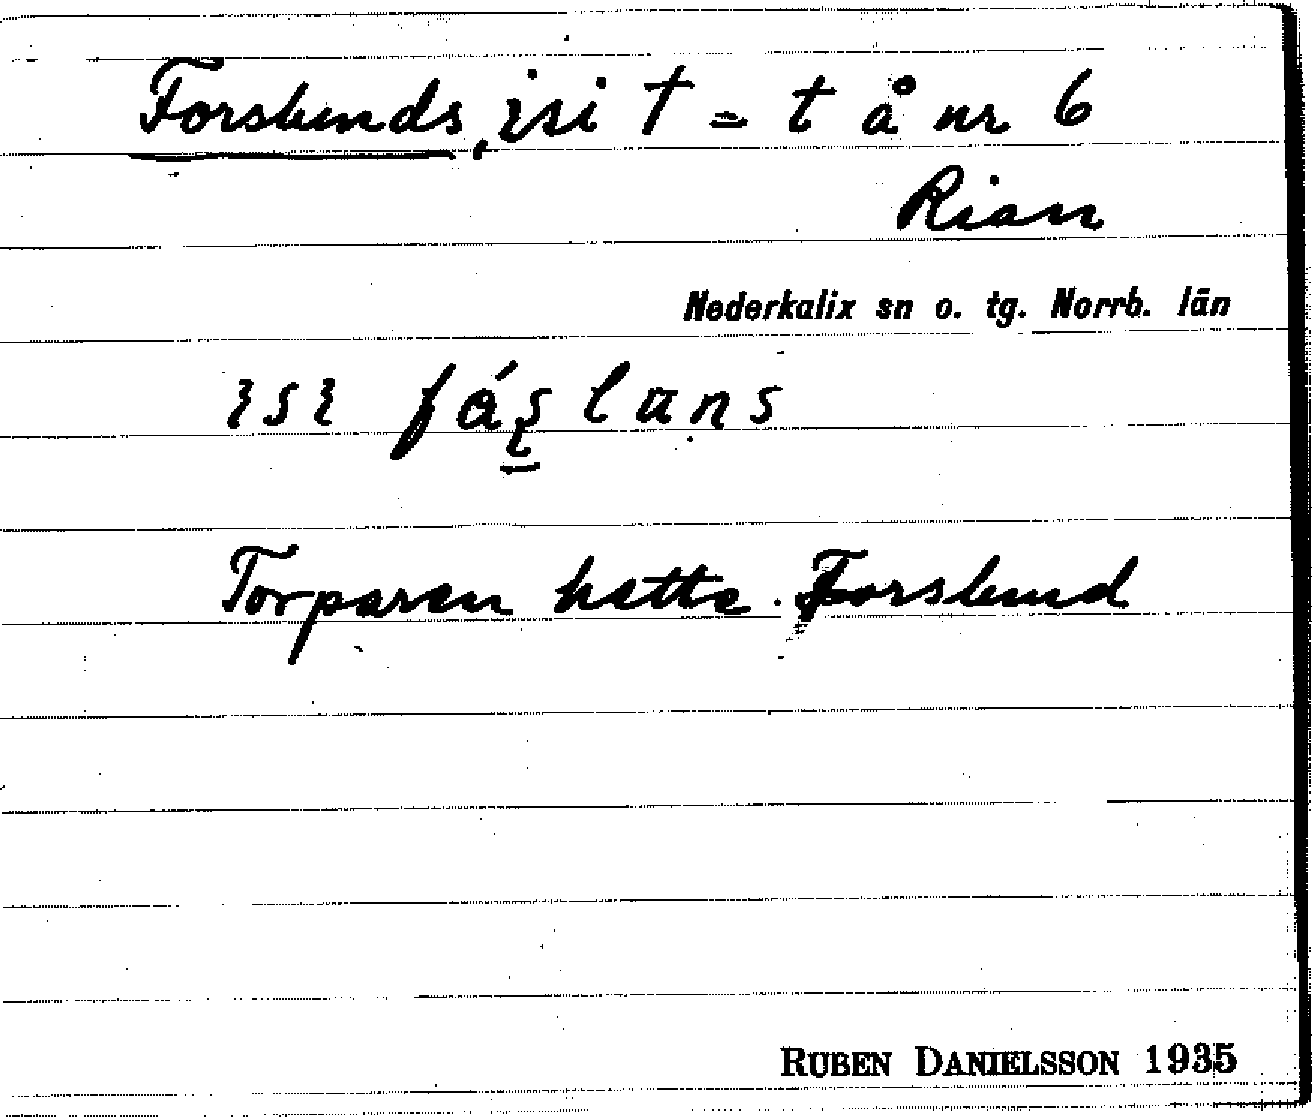 Forslunds, isi † = t å nr 6
Rian
Nederkalix sn o. tg. Norrb. län
Torparen hette Forslund
RUBEN DANIELSSON 1935